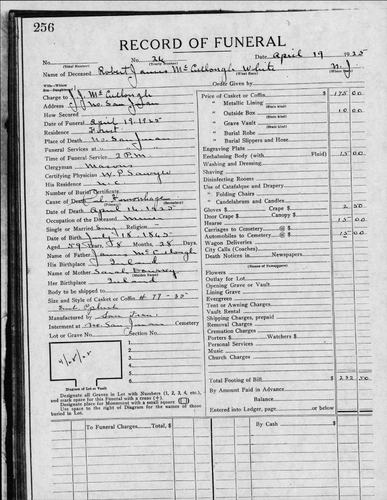 256
RECORD OF FUNERAL
No. 26 Date April 19 1925
(Total Number) (Yearly Number)
Name of Deceased Robert James McCullough White N. J.
Charge to J. J. McCullough
Order Given by
Address No. San Juan
How Secured
Date of Funeral April 19, 1925
Residence
Place of Death No. San Juan
Funeral Services at
Time of Funeral Service 2 P.M.
Clergyman Masons
Certifying Physician W. P. Sawyer
His Residence N. C.
Number of Burial Certificate
Cause of Death
Date of Death April 1925
Occupation of Deceased Miner
Single or Married Religion
Date of Birth July 18 1865
Aged 59 Years 8 Months 28 Days
Name of Father James McCullough
His Birthplace Ireland
Name of Mother Sarah
Her Birthplace Ireland
Body to be shipped to
Size and Style of Casket or Coffin # 77 - 
Manufactured by San Fran.
Interment at No. San Juan Cemetery
Lot or Grave No. Section No.
1.
2.
3.
4.
5.
6.
Diagram of Lot or Vault
Designate all Graves in Lot with Numbers (1, 2, 3, 4, etc.),
and mark space for this Funeral with a cross (+).
Designate place for Monument with a small square
Use space to right of Diagram for the names of those
buried in Lot.
Price of Casket or Coffin $ 175 00
" Metallic Lining
" Outside Box 10 00
" Grave Vault
" Burial Robe
" Burial Slippers and Hose
Engraving Plate
Embalming Body (with Fluid) 15 00
Washing and Dressing
Shaving
Disinfecting Rooms
Use of Catafalque and Drapery
" Folding Chairs
" Candelabrum and Candles
Gloves $ Crape $ 2 50
Door Crape $ Canopy $
Hearse 15 00
Carriages to Cemetery @ $
Automobiles to Cemetery @ $ 15 00
Wagon Deliveries
City Calls (Coaches)
Death Notices in Newspapers
Flowers
Outlay for Lot
Opening Grave or Vault
Lining Grave
Evergreen
Tent or Awning Charges
Vault Rental
Shipping Charges, prepaid
Removal Charges
Cremation Charges
Porters $ Watchers $
Personal Services
Music
Church Charges
Total Footing of Bill $ 232 50
By Amount Paid in Advance
Balance
Entered into Ledger, page or below
To Funeral Charges Total, $
By Cash $